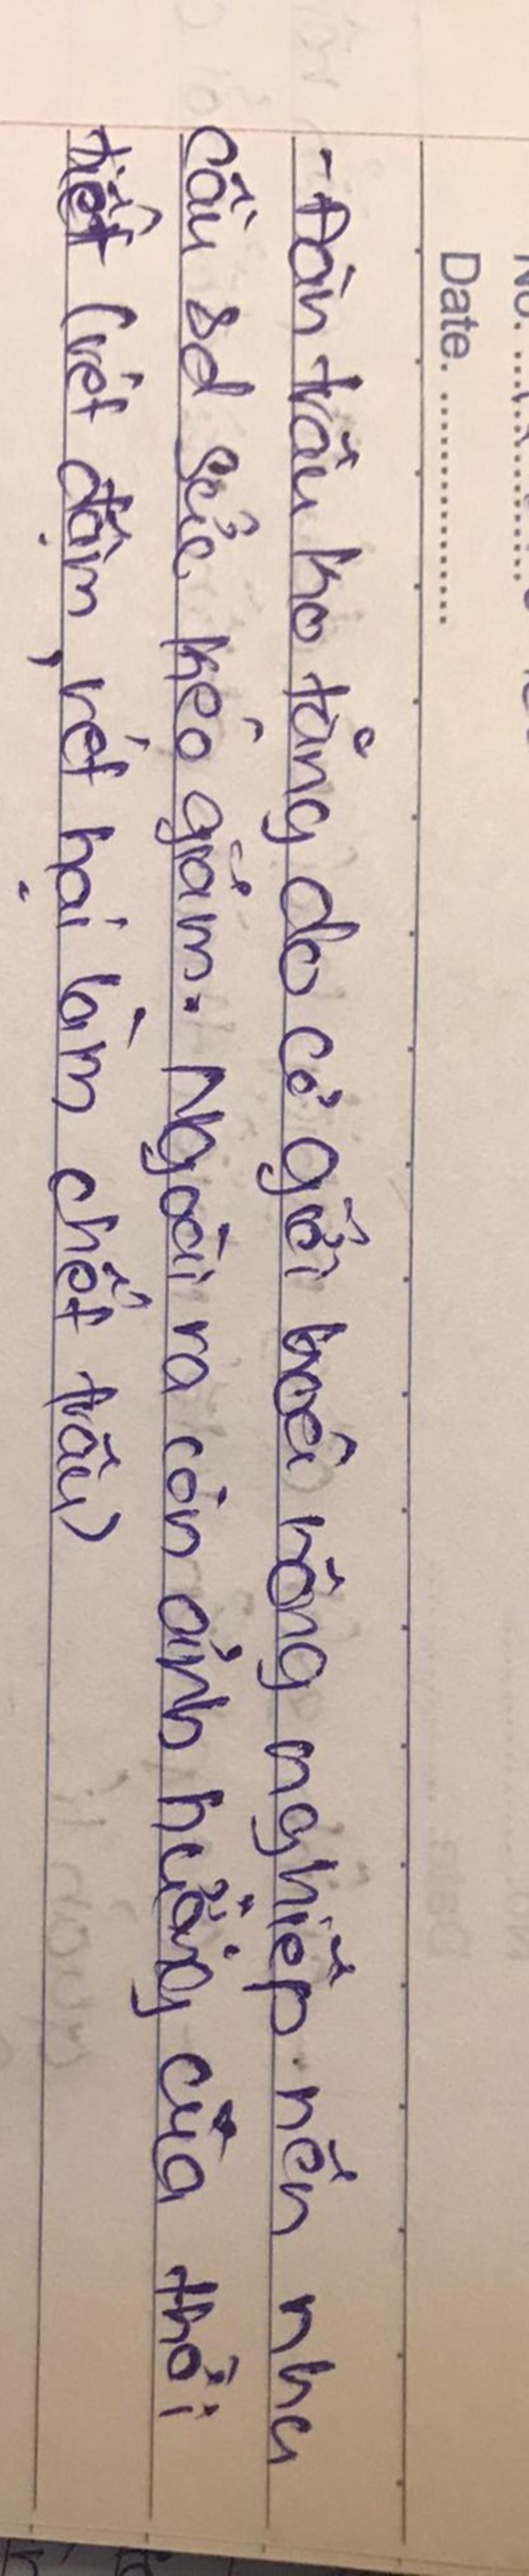 No.
Date.
- Đàn trâu ko tăng do cơ giới hoá nông nghiệp nên nhu
cầu sd sức kéo giảm. Ngoài ra còn ảnh hưởng của thời
tiết (rét đậm, rét hại làm chết trâu)